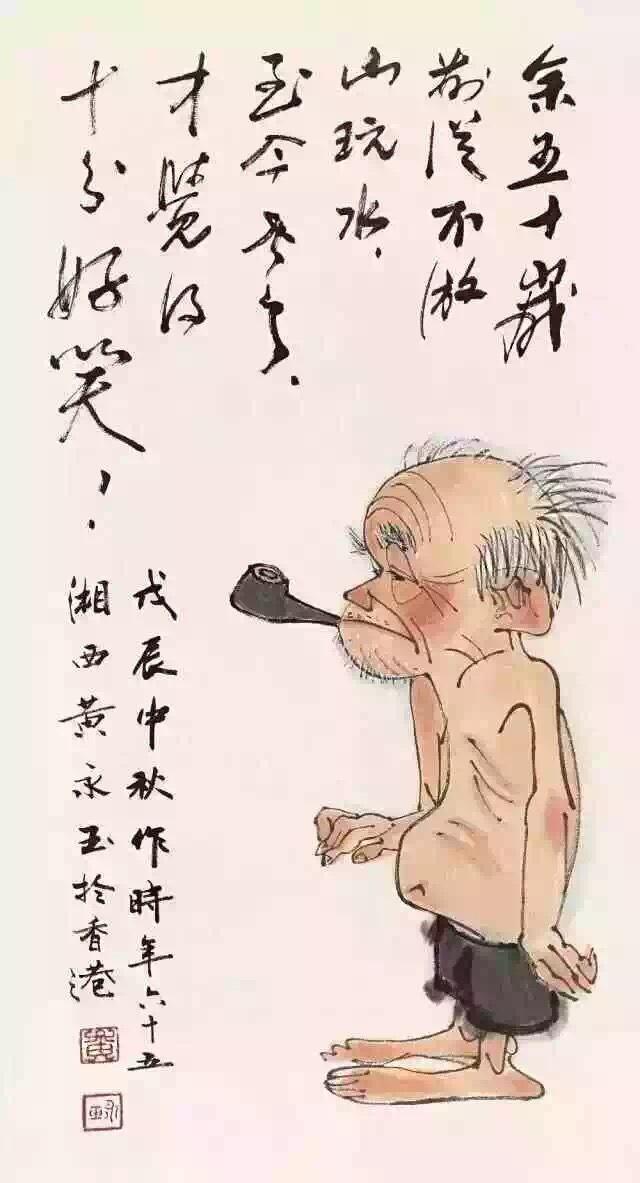 余五十歲
前從不游
山玩水、
至今老矣、
才覺得
十分好笑、、
戊辰中秋作時年六十五
湘西黃永玉於香港
黃